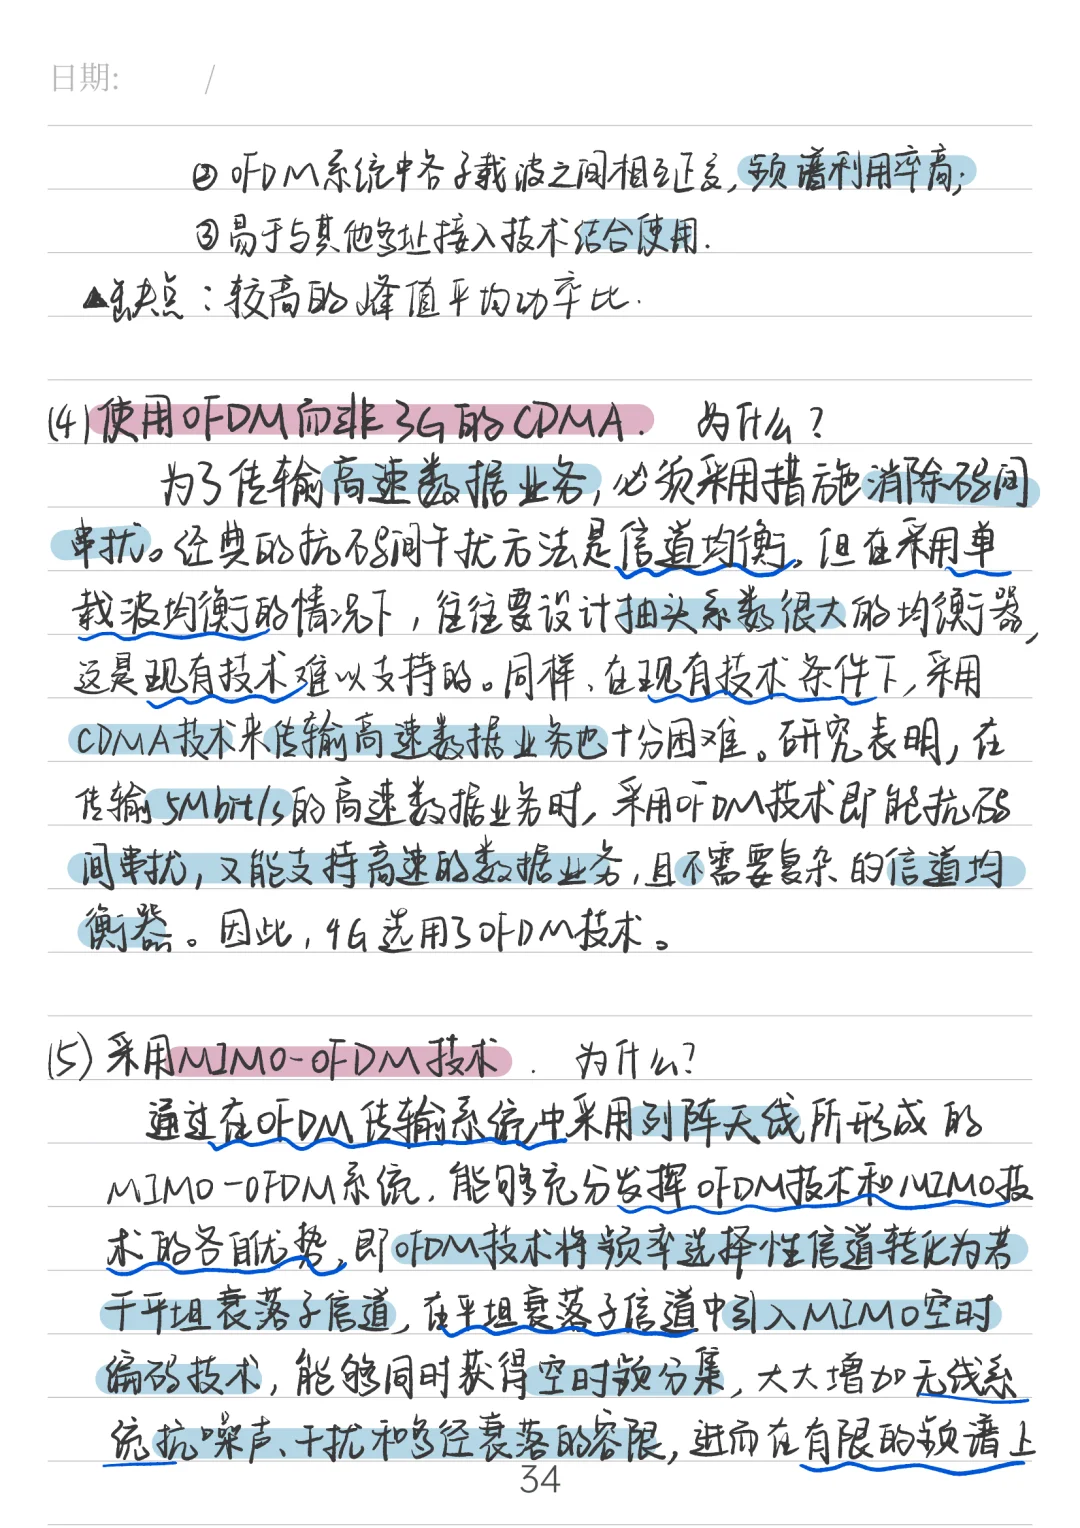 日期: /
② OFDM系统中各子载波之间相互正交,频谱利用率高;
③易于与其他多址接入技术结合使用.
▲缺点:较高的峰值平均功率比.
(4)使用OFDM而非3G的CDMA. 为什么?
为了传输高速数据业务,必须采用措施消除码间
串扰。经典的抗码间干扰方法是信道均衡。但在采用单
载波均衡的情况下,往往要设计抽头系数很大的均衡器,
这是现有技术难以支持的。同样、在现有技术条件下,采用
CDMA技术来传输高速数据业务也十分困难。研究表明,在
传输5Mbit/s的高速数据业务时,采用OFDM技术即能抗码
间串扰,又能支持高速的数据业务,且不需要复杂的信道均
衡器。因此,4G选用了OFDM技术。
(5)采用MIMO-OFDM技术. 为什么?
通过在OFDM传输系统中采用列阵天线所形成的
MIMO-OFDM系统.能够充分发挥OFDM技术和MIMO技
术的各自优势,即OFDM技术将频率选择性信道转化为若
干平坦衰落子信道,在平坦衰落子信道中引入MIMO空时
编码技术,能够同时获得空时频分集,大大增加无线系
统抗噪声、干扰和多径衰落的容限,进而在有限的频谱上
34